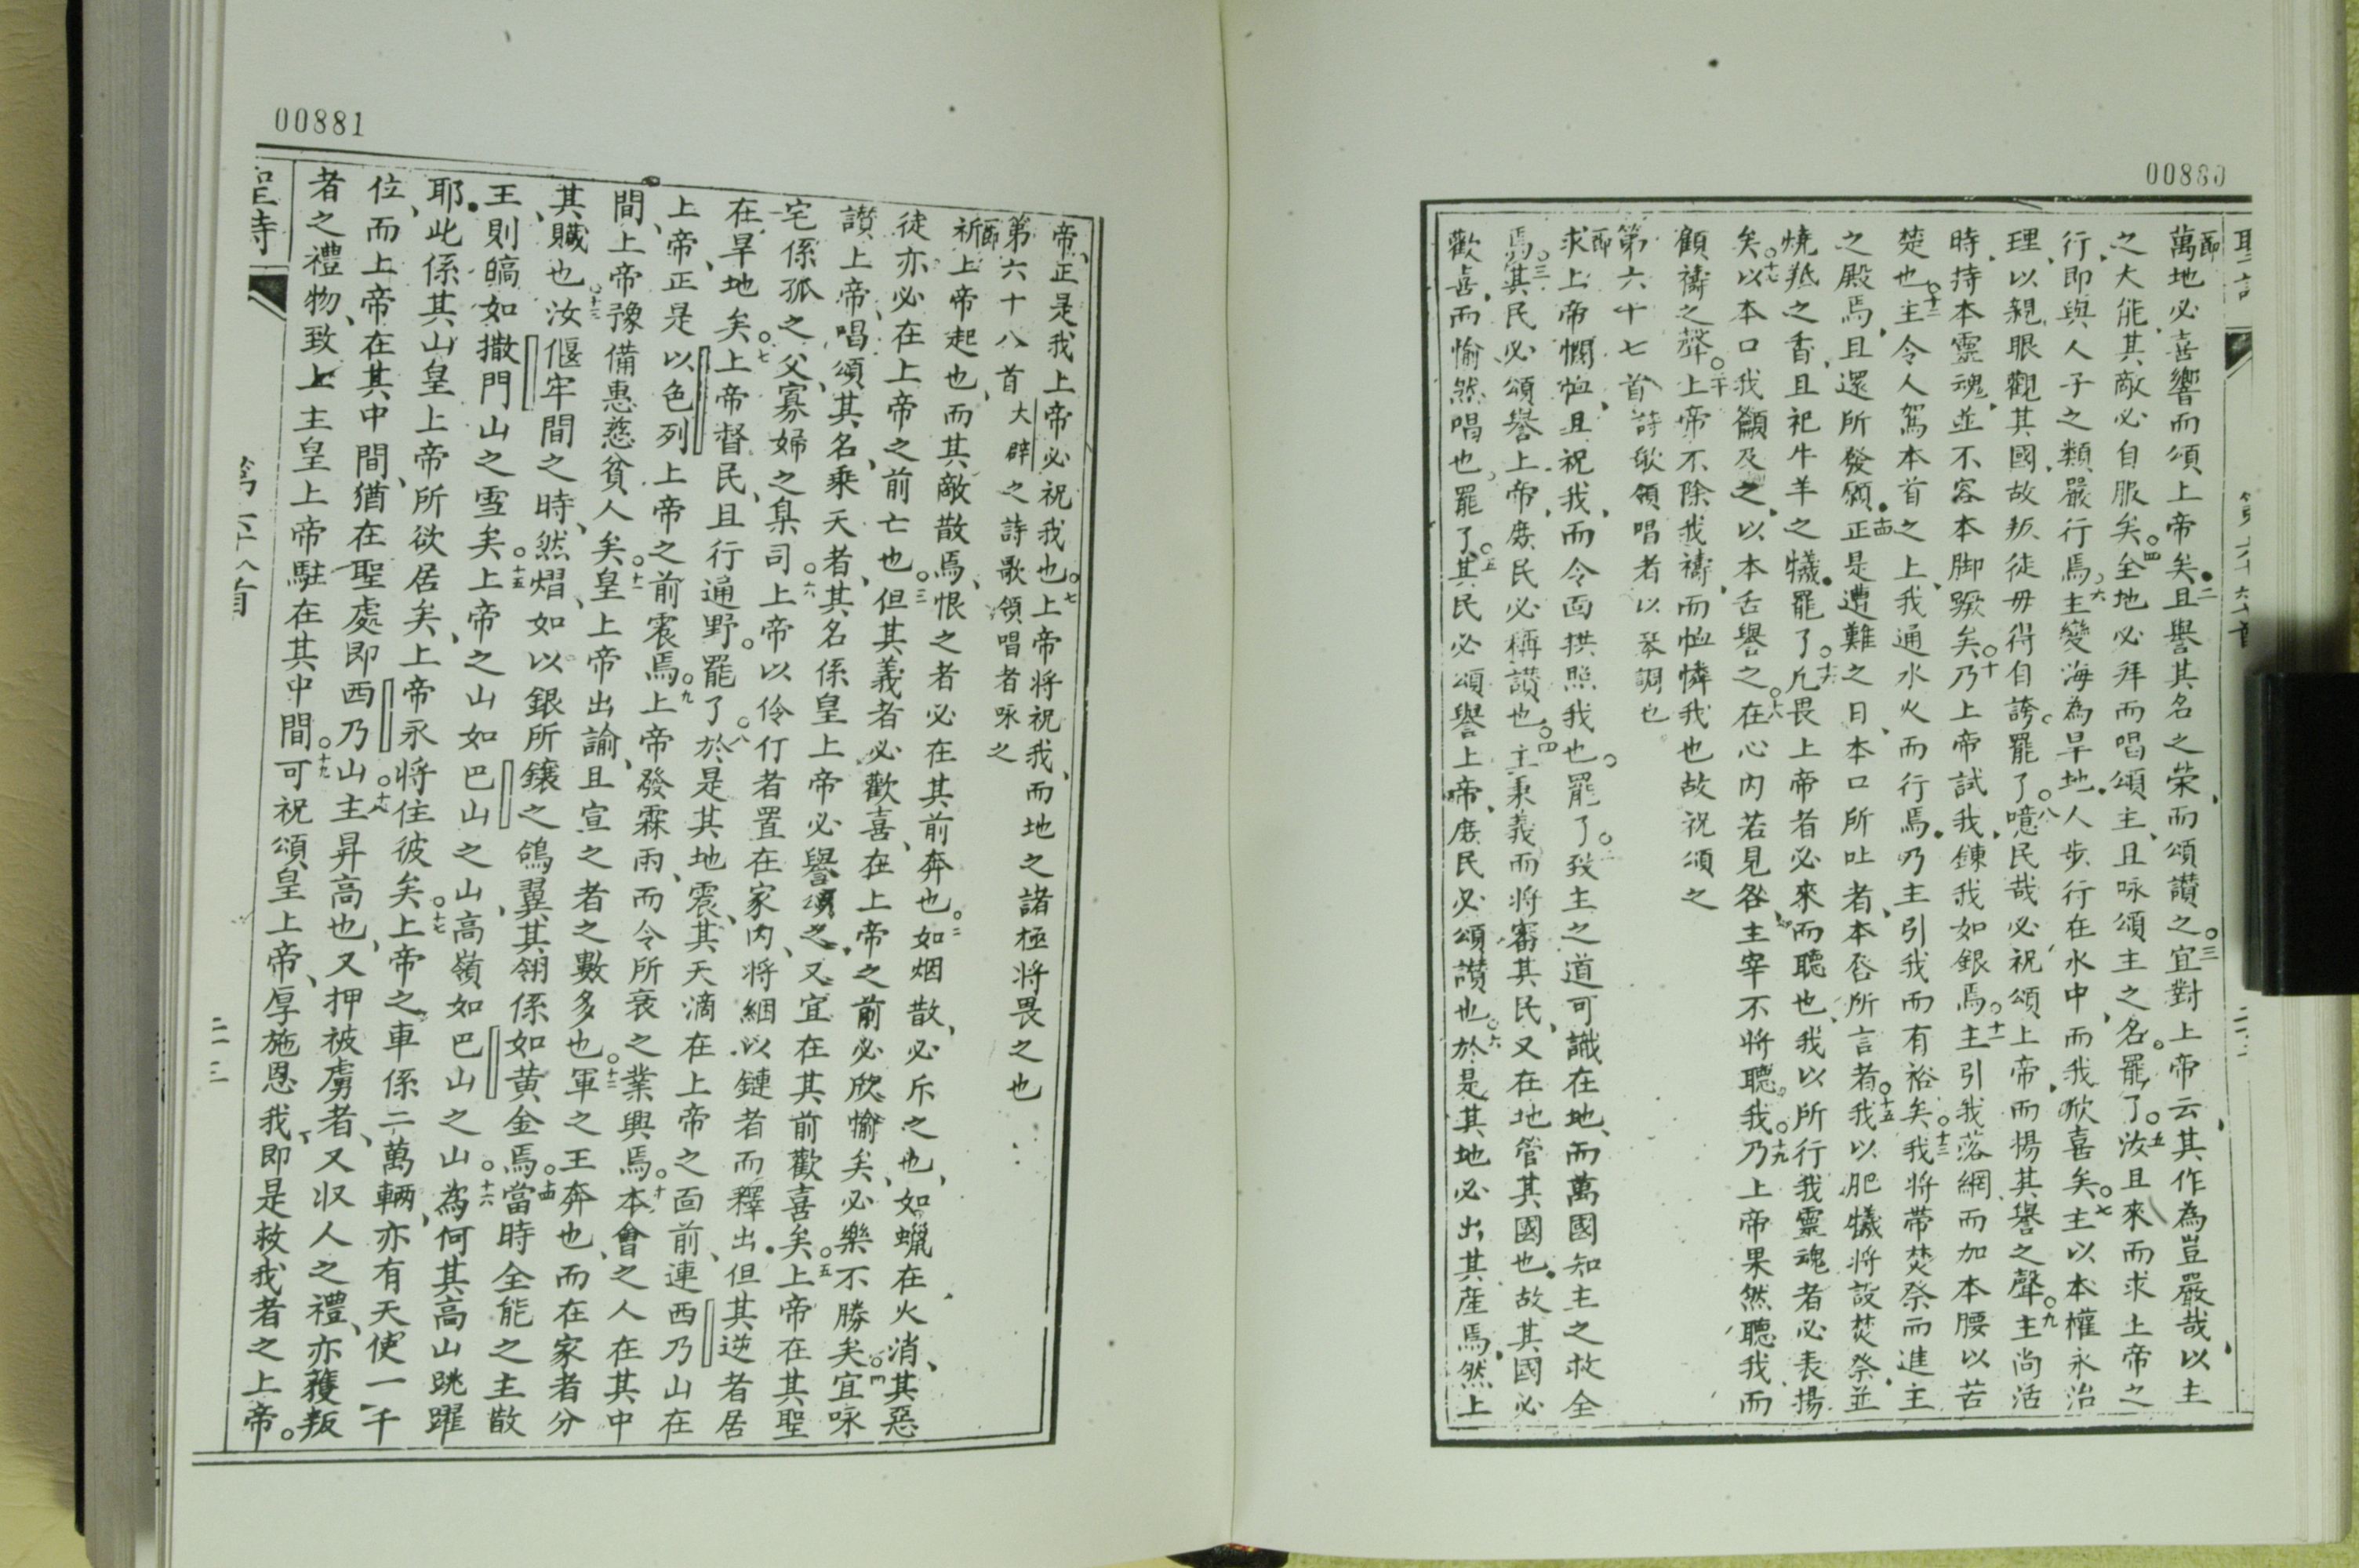 00880
聖詩
節萬地必喜響而頌上帝矣二且譽其名之荣而頌讃之三宜對上帝云其作為豈嚴哉以主
之大能其敵必自服矣四全地必拜而唱頌主且咏頌主之名罷了五汝且來而求上帝之
行即與人子之類嚴行焉六主變海為旱地人步行在水中而我歡喜矣七主以本權永治
理以親眼觀其國故叛徒毋得自誇罷了八噫民哉必祝頌上帝而揚其譽之聲九主尚活
時持本靈魂並不容本脚蹶矣十乃上帝試我錬我如銀焉十一主引我落網而加本腰以苦
楚也十二主令人駕本首之上我通水火而行焉乃主引我而有裕矣十三我将帶焚祭而進主
之殿焉且還所發願十四正是遭難之日本口所吐者本唇所言者十五我以肥犧将設焚祭並
燒羝之香且祀牛羊之犧罷了十六凢畏上帝者必來而聽也我以所行我靈魂者必表揚
矣十七以本口我籲及之以本舌譽之十八在心内若見咎主宰不将聽我十九乃上帝果然聽我而
顧禱之聲二十上帝不除我禱而恤憐我也故祝頌之
第六十七首詩歌領唱者以琴調也
節求上帝憫恤且祝我而令面拱照我也罷了二致主之道可識在地而萬國知主之救全
焉三其民必頌譽上帝庶民必稱讃也四主秉義而将審其民又在地管其國也故其國必
歡喜而愉然唱也罷了五其民必頌譽上帝庶民必頌讃也六於是其地必出其産焉然上
00881
帝正是我上帝必祝我也七上帝将祝我而地之諸極将畏之也
第六十八首大辟之詩歌領唱者咏之
節祈上帝起也而其敵散焉恨之者必在其前奔也二如烟散必斥之也如蠟在火消其惡
徒亦必在上帝之前亡也三但其義者必歡喜在上帝之前必欣愉矣必樂不勝矣四宜咏
讃上帝唱頌其名乘天者其名係皇上帝必譽頌之又宜在其前歡喜矣五上帝在其聖
宅係孤之父寡婦之臬司六上帝以伶仃者置在家内将綑以鏈者而釋出但其逆者居
在旱地矣七上帝督民且行通野罷了八於是其地震其天滴在上帝之面前連西乃山在
上帝正是以色列上帝之前震焉九上帝發霖雨而令所衰之業興焉十本會之人在其中
間上帝豫備惠慈貧人矣十一皇上帝出諭且宣之者之數多也十二軍之王奔也而在家者分
其贓也十三汝偃牢間之時然熠如以銀所鑲之鴿翼其翎係如黄金焉十四當時全能之主散
王則皜如撒門山之雪矣十五上帝之山如巴山之山高嶺如巴山之山十六為何其高山跳躍
耶此係其山皇上帝所欲居矣上帝永将住彼矣十七上帝之車係二萬輛亦有天使一千
位而上帝在其中間猶在聖處即西乃山主昇高也又押被虜者又収人之禮亦獲叛
者之禮物致上主皇上帝駐在其中間十九可祝頌皇上帝厚施恩我即是救我者之上帝
聖詩
第六十八首
二十三